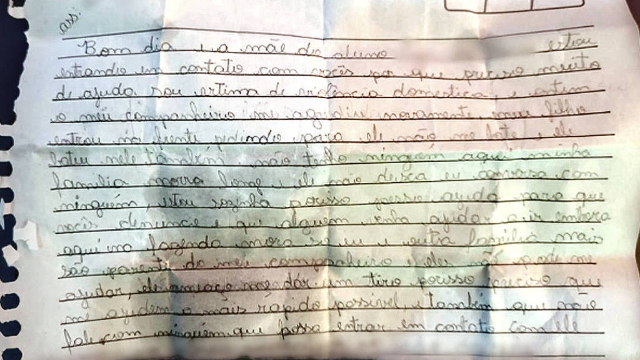 ass:
Bom dia e a mãe do aluno estou
entrando em contato com vocês por que preciso muito
de ajuda sou vitima de violência domestica, e ontem
o meu companheiro me agrediu novamente, meu filho
entrou na frente pedindo para ele não me bate e ele
bateu nele também, não tenho ninguem aqui minha
família morra longe e ele não deixa eu conversa com
ninguem estou sozinha ajuda para que
vocês denuncie e que alguem venha ajudar a ir embora
aqui na fazenda mora so eu e outra família mais
são parente do meu companheiro eles não pode me
ajudar, dar um tiro preciso que
me ajudem o mais rapido possível, e também que não
fale com ninguém que possa entrar em contato com ele